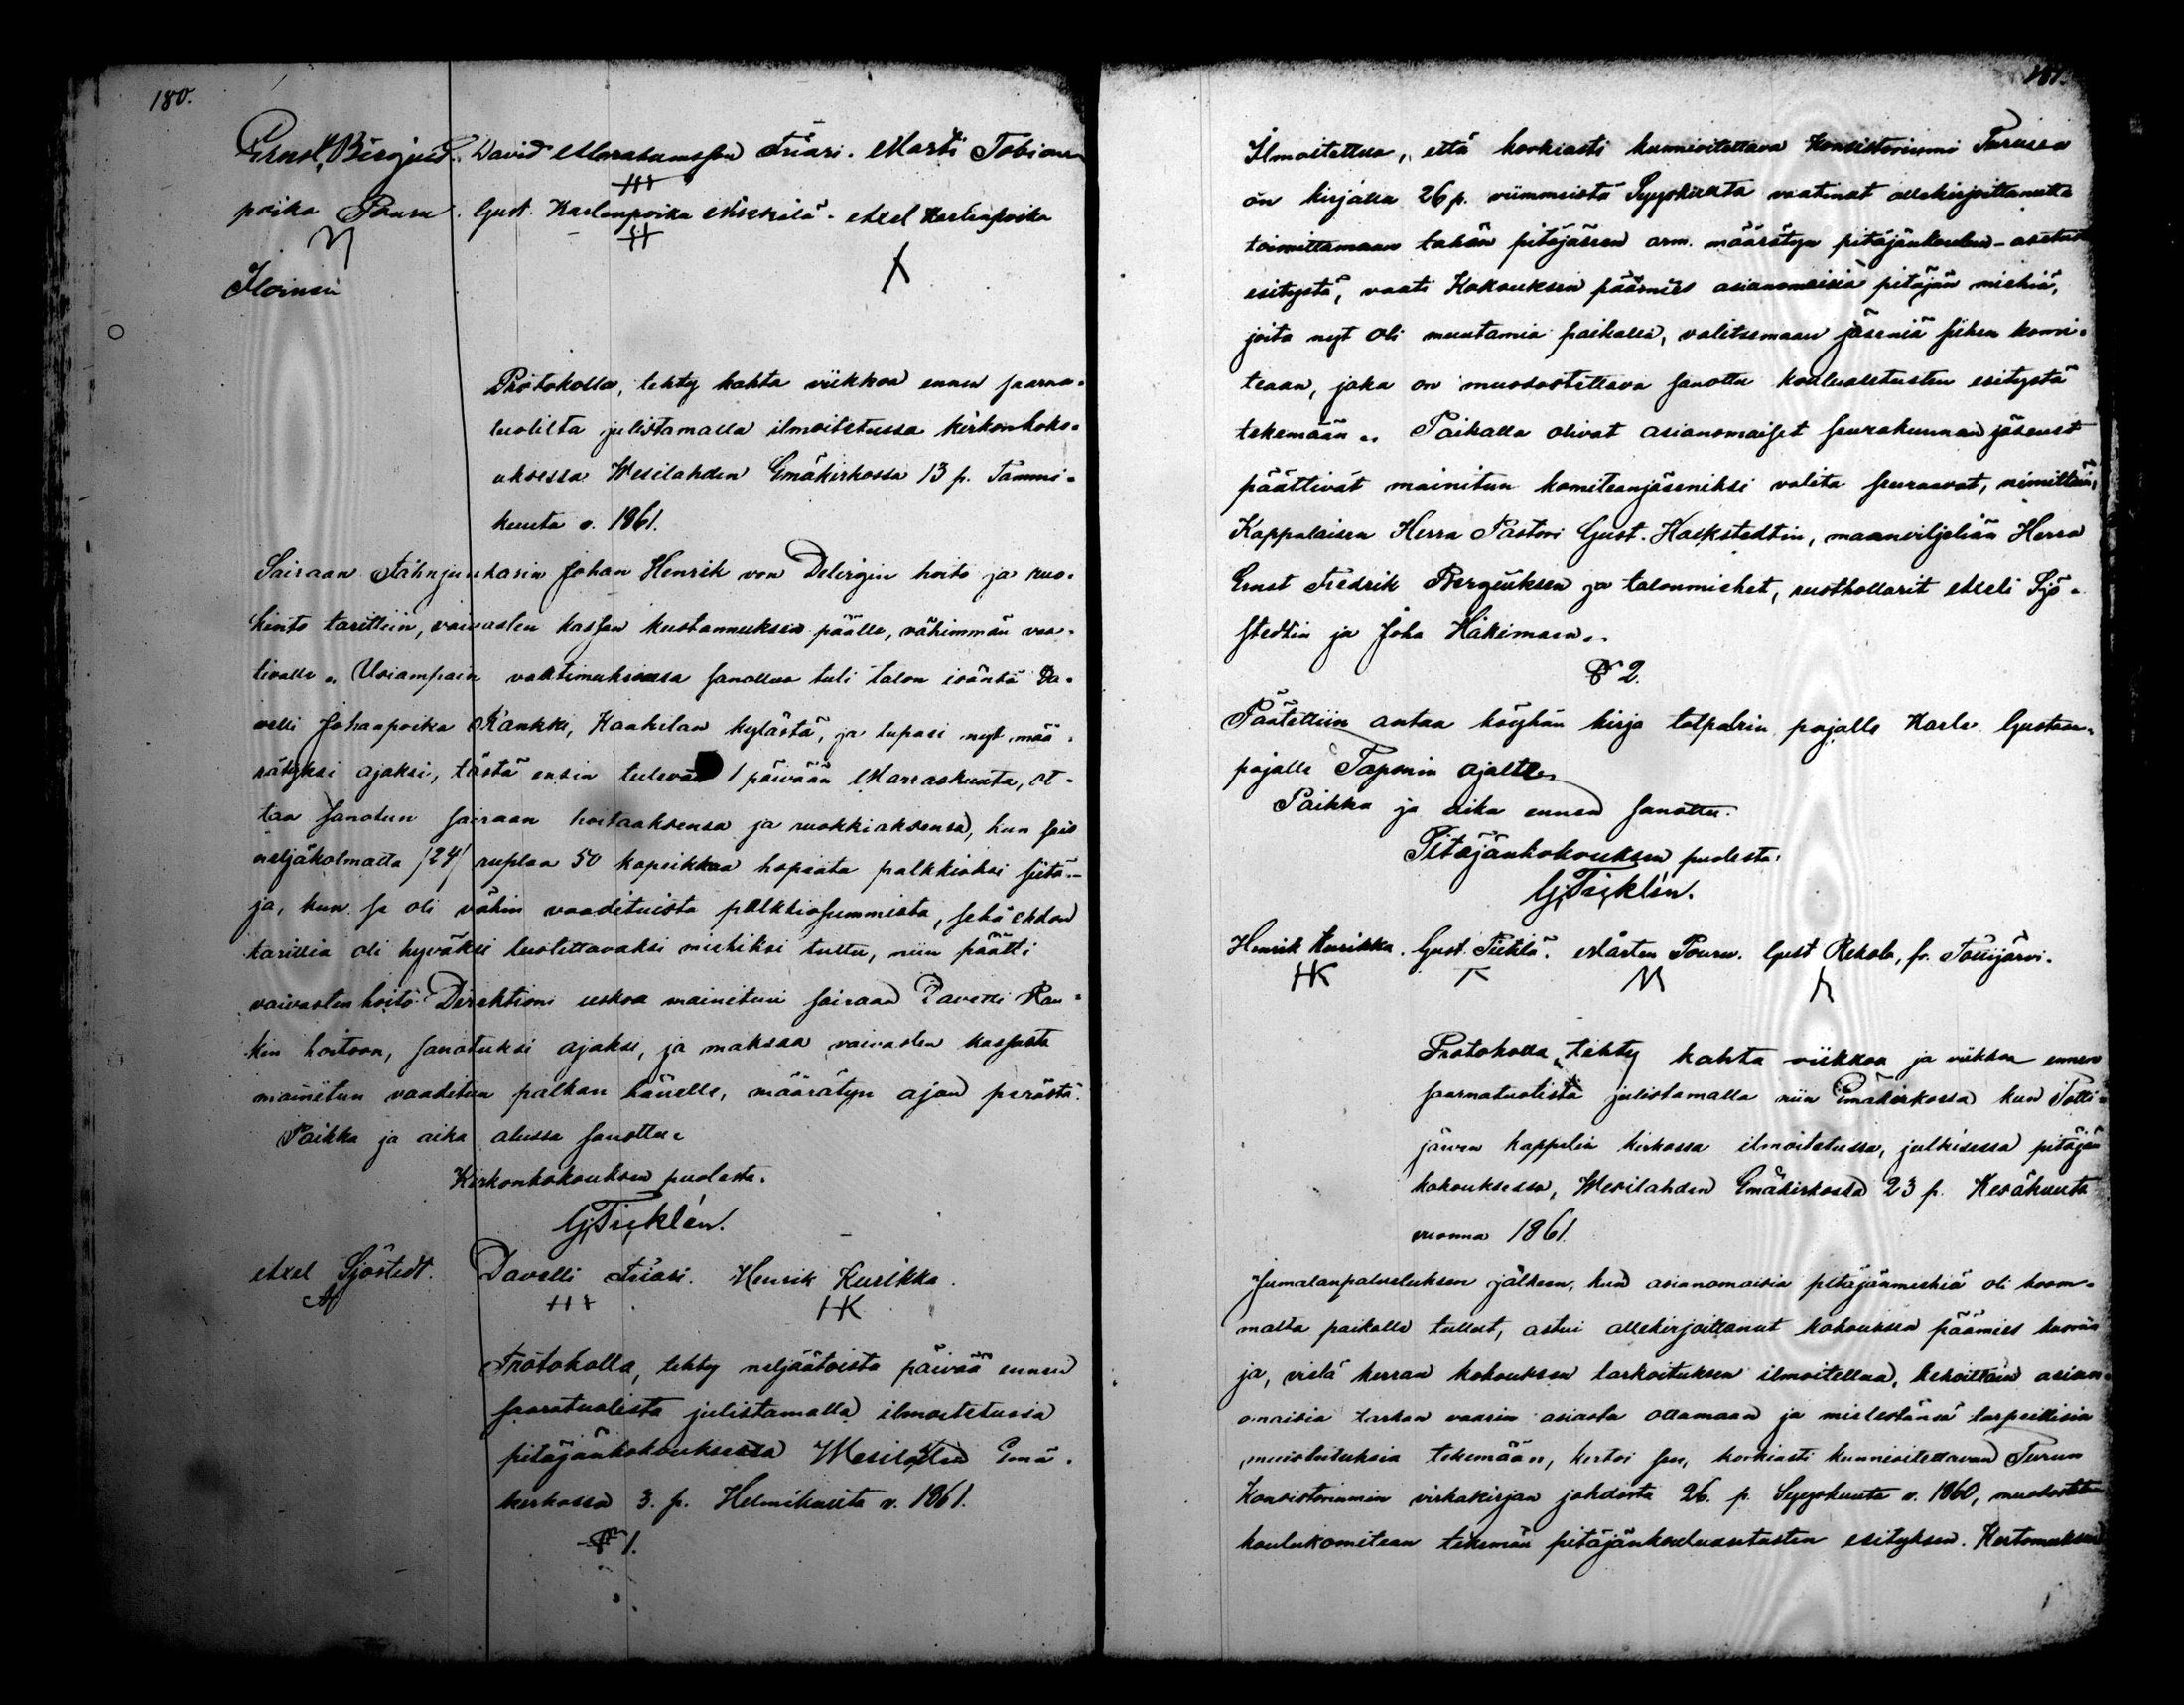 180.
Ernst Bergius. David Abrahamsson Friari. Martti Tobiaan
poika Pouru. Gust. Karlenpoika Niskilä. Axel Karlinpoika
Iloinen
Protokolla, tehty kahta viikkoa ennen saarna-
tuolilta julistamalla ilmoitetussa kirkonkoko-
uksessa Wesilahden Emäkirkossa 13 p. Tammi-
kuuta v. 1861.
Sairaan Fähnjunkarin Johan Henrik von Delvigin hoito ja ruo-
kinto tarittiin, vaivasten kassan kustannuksen päälle, vähimmän vaa-
tivalle. Useampain vaatimuksessa sanottua tuli talon isäntä Ta-
velli Johanpoika Rankki, Kaakilan kylästä, ja lupasi nyt mää-
rätyksi ajaksi, tästä ensin tulevaan 1 päivään Marraskuuta, ot-
taa sanotun sairaan hoitaaksensa ja ruokkiaksensa, kun sais
neljäkolmatta /24/ ruplaa 50 kopeikkaa hopiata palkkioksi siitä-
ja, kun se oli vähin vaadituista palkkiosummista, sekä ehdon
tarittia oli hyväksi luotettavaksi mieheksi tuttu, niin päätti
vaivasten hoito Direktioni uskoa mainitun sairaan Tavetti Ran-
kin hoitoon, sanotuksi ajaksi, ja maksaa vaivasten kassasta
mainitun vaaditun palkan hänelle, määrätyn ajan perästä.
Paikka ja aika alussa sanottu.
Kirkonkokouksen puolesta.
G. Ticklén.
Axel Sjöstedt. Davelli Friari. Henrik Kurikka.
HK
Protokolla, tehty neljäätoista päivää ennen
saarnatuolista julistamalla ilmoitetussa
pitäjänkokouksessa Wesilahden Emä-
kirkossa 3. p. Helmikuuta v. 1861.
§ 1.
181.
Ilmoitettua, että korkiasti kunnioitettava Konsistoriumi Turussa
on kirjalla 26 p. viimmeistä Syyskuuta vaatinut allekirjoittanutta
toimittamaan tähän pitäjäseen arm. määrätyn pitäjänkoulun-asetus
esitystä, vaati Kokouksen päämies asianomaisia pitäjän miehiä,
joita nyt oli muutamia paikalla, valitsemaan jäseniä siihen komi-
teaan, joka on muodostettava sanottu kouluasetusten esitystä
tekemään. Paikalla olivat asianomaiset seurakunnan jäsenet
päättivät mainitun komiteanjäseniksi valita seuraavat, nimittäin,
Kappalaisen Herra Pastori Gust. Hackstedtin, maanviljeliän Herra
Ernst Fredrik Bergiuksen ja talonmiehet, rusthollarit Axeli Sjö-
stedtin ja Joha Häkimaen.
§ 2.
Päätettiin antaa köyhän kirja torpparin pojalle Karle Gustaa-
pojalle Taponin ajalta.
Paikka ja aika ennen sanottu.
Pitäjänkokouksen puolesta:
G. Ticklén.
Henrik Kurikka. Gust. Pietilä. Mårten Pouru. Gust Rekola, fr. Tottijärvi.
HK
Protokolla, tehty kahta viikkoa ja viikkoa ennen
saarnatuolista julistamalla niin Emäkirkossa kun Totti-
järven kappelin kirkossa ilmoitetussa, julkisessa pitäjän
kokouksessa, Wesilahden Emäkirkossa 23 p. Kesäkuuta
vuonna 1861.
Jumalanpalveluksen jälkeen, kun asianomaisia pitäjänmiehiä oli koom-
malta paikalle tullut, astui allekirjoittanut kokouksen päämies
ja, vielä kerran kokouksen tarkoituksen ilmoitettua, kehoittain asian-
omaisia tarkan vaarin asiasta ottamaan ja mielestänsä tarpeillisia
muistutuksia tekemään, kertoi sen, korkiasti kunnioitettavan Turun
Konsistoriumin virkakirjan johdosta 26. p. Syyskuuta v. 1860, muodostetun
koulukomitean tekemän pitäjänkouluasetusten esityksen. Kertomuksen